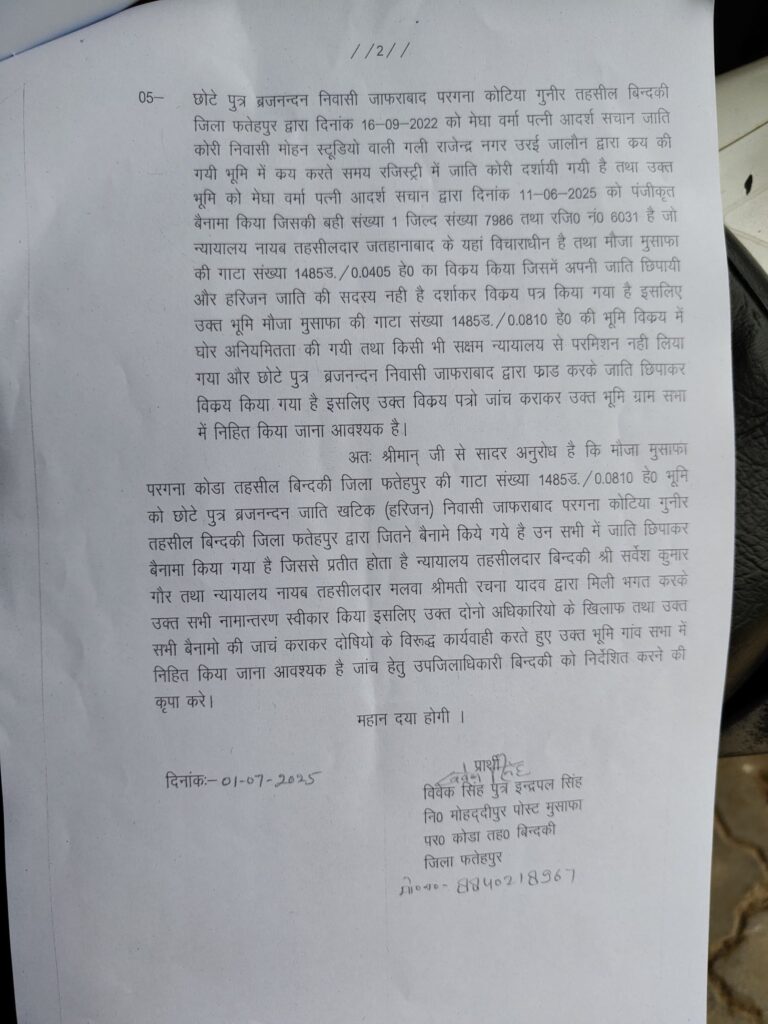 //2//
05- छोटे पुत्र ब्रजनन्दन निवासी जाफराबाद परगना कोटिया गुनीर तहसील बिन्दकी
जिला फतेहपुर द्वारा दिनांक 16-09-2022 को मेघा वर्मा पत्नी आदर्श सचान जाति
कोरी निवासी मोहन स्टूडियो वाली गली राजेन्द्र नगर उरई जालौन द्वारा क्रय की
गयी भूमि में क्रय करते समय रजिस्ट्री में जाति कोरी दर्शायी गयी है तथा उक्त
भूमि को मेघा वर्मा पत्नी आदर्श सचान द्वारा दिनांक 11-06-2025 को पंजीकृत
बैनामा किया जिसकी बही संख्या 1 जिल्द संख्या 7986 तथा रजि0 नं0 6031 है जो
न्यायालय नायब तहसीलदार जतहानाबाद के यहां विचाराधीन है तथा मौजा मुसाफा
की गाटा संख्या 1485ड./0.0405 हे0 का विक्रय किया जिसमें अपनी जाति छिपायी
और हरिजन जाति की सदस्य नही है दर्शाकर विक्रय पत्र किया गया है इसलिए
उक्त भूमि मौजा मुसाफा की गाटा संख्या 1485ड./0.0810 हे0 की भूमि विक्रय में
घोर अनियमितता की गयी तथा किसी भी सक्षम न्यायालय से परमिशन नही लिया
गया और छोटे पुत्र ब्रजनन्दन निवासी जाफराबाद द्वारा फ्राड करके जाति छिपाकर
विक्रय किया गया है इसलिए उक्त विक्रय पत्रो जांच कराकर उक्त भूमि ग्राम सभा
में निहित किया जाना आवश्यक है।
अतः श्रीमान् जी से सादर अनुरोध है कि मौजा मुसाफा
परगना कोडा तहसील बिन्दकी जिला फतेहपुर की गाटा संख्या 1485ड./0.0810 हे0 भूमि
को छोटे पुत्र ब्रजनन्दन जाति खटिक (हरिजन) निवासी जाफराबाद परगना कोटिया गुनीर
तहसील बिन्दकी जिला फतेहपुर द्वारा जितने बैनामे किये गये है उन सभी में जाति छिपाकर
बैनामा किया गया है जिससे प्रतीत होता है न्यायालय तहसीलदार बिन्दकी श्री सर्वेश कुमार
गौर तथा न्यायालय नायब तहसीलदार मलवा श्रीमती रचना यादव द्वारा मिली भगत करके
उक्त सभी नामान्तरण स्वीकार किया इसलिए उक्त दोनो अधिकारियो के खिलाफ तथा उक्त
सभी बैनामो की जाचं कराकर दोषियो के विरूद्ध कार्यवाही करते हुए उक्त भूमि गांव सभा में
निहित किया जाना आवश्यक है जांच हेतु उपजिलाधिकारी बिन्दकी को निर्देशित करने की
कृपा करे।
महान दया होगी ।
प्रार्थी
दिनांकः- 01-07-2025
विवेक सिंह पुत्र इन्द्रपल सिंह
नि0 मोहद्दीपुर पोस्ट मुसाफा
पर0 कोडा तह0 बिन्दकी
जिला फतेहपुर
मो०न०- 8840218967